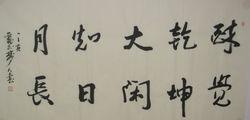 醉覺
乾坤
大閑
知日
月長